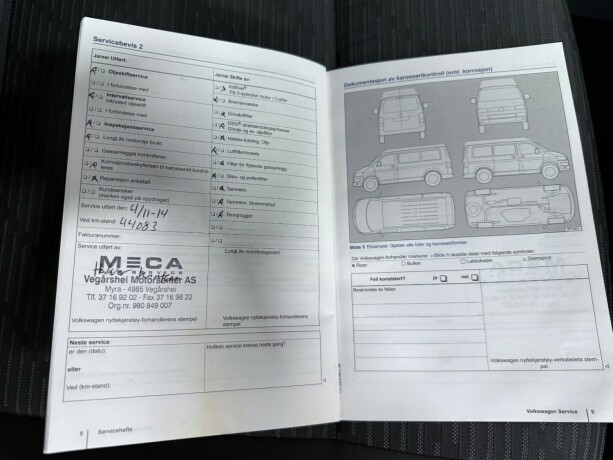 Servicebevis 2
Ja/nei Utført:
Oljeskiftservice
I forbindelse med
Intervallservice
Inkludert oljeskift
I forbindelse med
Inspeksjonsservice
LongLife motorolje brukt
Gassanlegget kontrolleres
Korrosjonsbeskyttelsen til karosseriet kontrol-
leres
Reparasjon anbefalt
Kundeønsker
(merkes også på oppdraget)
Service utført den: 4/11-14
Ved km-stand: 44083
Fakturanummer:
Service utført av:
MECA
SERVICE
Vegårshei Motorsenter AS
Myra - 4985 Vegårshei
Tlf. 37 16 92 02 - Fax 37 16 96 22
Org.nr. 980 849 007
Volkswagen nyttekjøretøy-forhandlerens stempel
Ja/nei Skifte av:
AdBlue®
På 5-sylindret motor i Crafter
Bremsevæske
Drivstoffilter
Haldex-kobling: Olje
Luftfilterinnsats
Filter for flytende gassanlegg
Støv- og pollenfilter
Tannreim
Tannreim: Strammehjul
Tennplugger
LongLife motoroljegaranti
Volkswagen nyttekjøretøy-forhandlerens
stempel
Neste service
er den (dato):
eller
Ved (km-stand):
Hvilken service kreves neste gang?
8 Servicehefte
Dokumentasjon av karosserikontroll (omt. korrosjon)
Bilde 5 Eksempel: Gjelder alle biler og karosseriformer
De Volkswagen-forhandler markerer → Bilde 5 skadde deler med følgende symboler:
Riper
Bulker
Lakkskader
Steinsprut
Feil konstatert? ja nei
Beskrivelse av feilen
Volkswagen nyttekjøretøy-verkstedets stem-
pel
Volkswagen Service 9